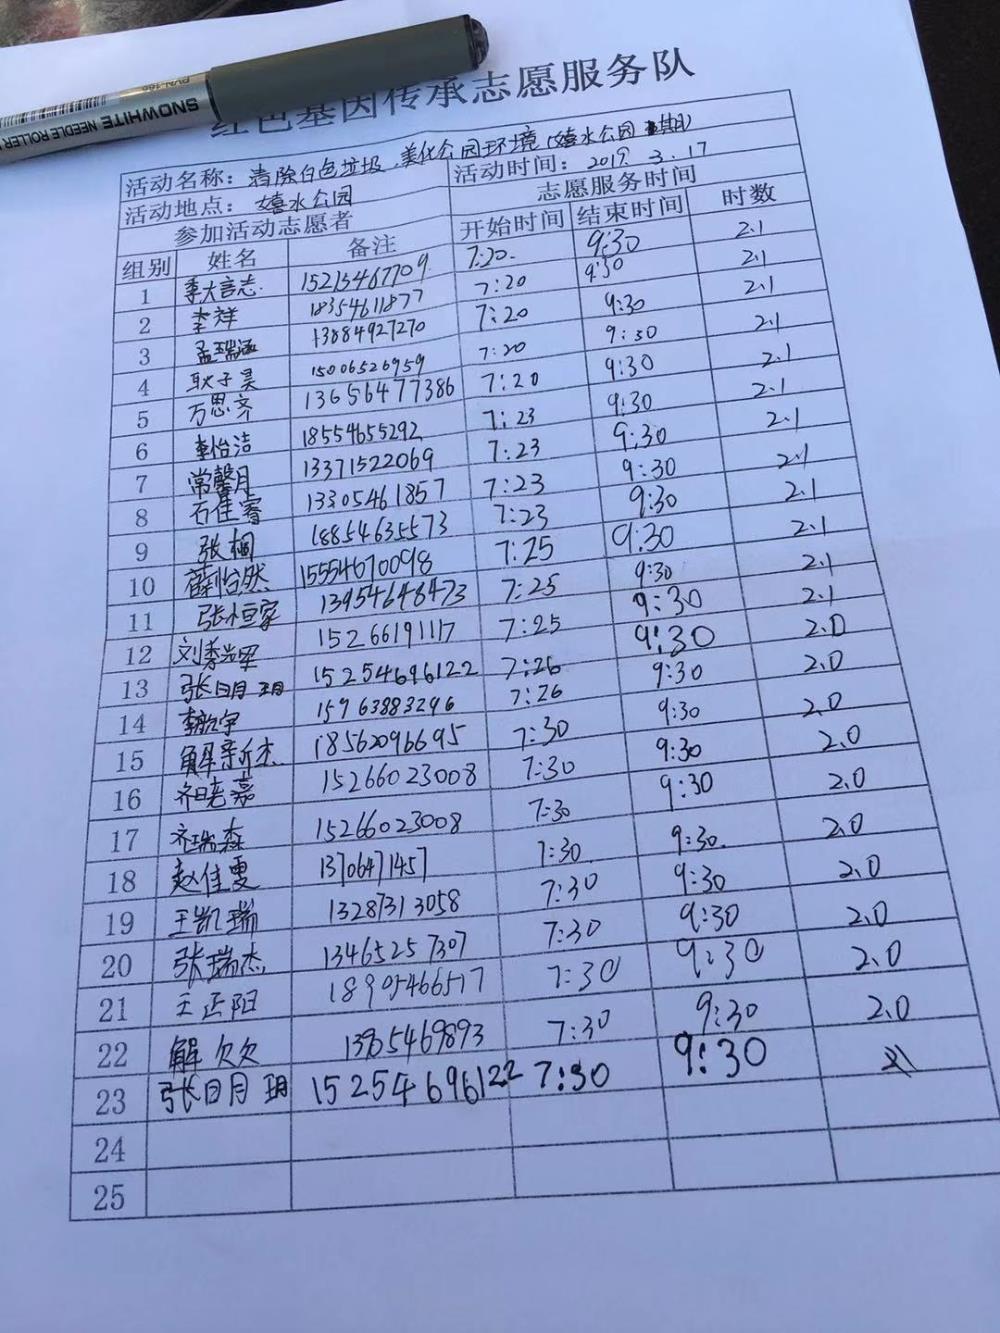 PVN-166
SNOWHITE NEEDLE ROLLER
红色基因传承志愿服务队
活动名称：清除白色垃圾，美化公园环境（嬉水公园
活动地点：嬉水公园 活动时间：2019 3.17
参加活动志愿者 志愿服务时间
组别 姓名 备注 开始时间 结束时间 时数
1 李大言志 15215467709 7:20 9:30 2.1
2 李祥 18354611877 7:20 9:30 2.1
3 孟瑞涵 13884927270 7:20 9:30 2.1
4 耿子昊 15006526959 7:20 9:30 2.1
5 万思齐 13656477386 7:20 9:30 2.1
6 李怡洁 18554655292 7:23 9:30 2.1
7 常馨月 13371522069 7:23 9:30 2.1
8 石佳睿 13305461857 7:23 9:30 2.1
9 张桐 18854635573 7:23 9:30 2.1
10 薛怡然 15554670098 7:25 9:30 2.1
11 张恒家 13954648473 7:25 9:30 2.1
12 刘 15266191117 7:25 9:30 2.1
13 张日月玥 15254696122 7:26 9:30 2.0
14 李 宇 15963883296 7:26 9:30 2.0
15 解新杰 18562096695 7:30 9:30 2.0
16 齐晓嘉 15266023008 7:30 9:30 2.0
17 齐瑞森 15266023008 7:30 9:30 2.0
18 赵佳雯 13706471457 7:30 9:30 2.0
19 王凯瑞 13287313058 7:30 9:30 2.0
20 张瑞杰 13465257307 7:30 9:30 2.0
21 王正阳 18905466517 7:30 9:30 2.0
22 解欠欠 13985469893 7:30 9:30 2.0
23 张日月玥 15254696122 7:30 9:30
24
25